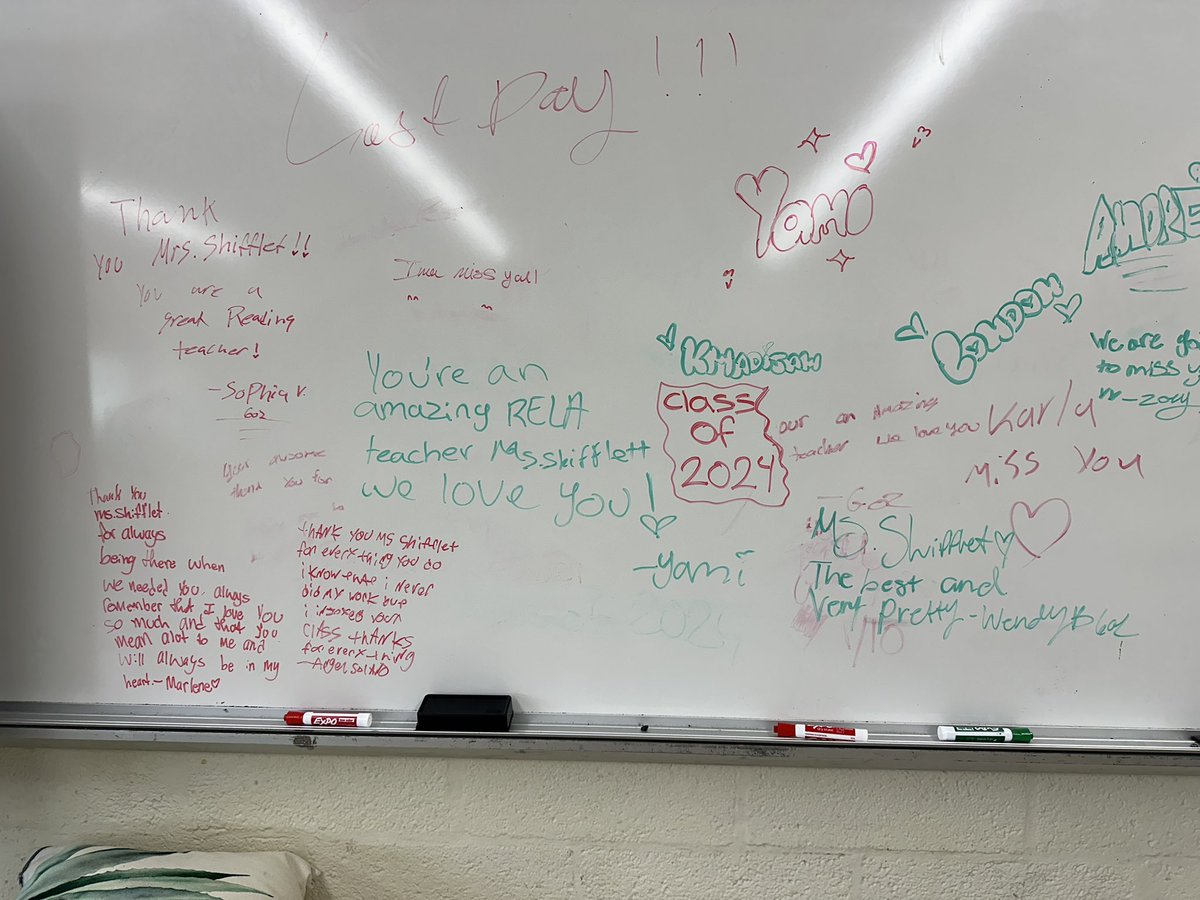 Last Day !!!
Thank
You Mrs. Shifflet!!
You are a
great Reading
teacher!
-Sophia V.
602
I'ma miss yall
Your awsome
thank you for
Thank You
Ms. Shifflet
for always
being there when
we needed you. always
remember that I love you
so much and that you
mean alot to me and
will always be in my
heart.- Marlene♡
thank you Ms Shifflet
for everything you do
i know that i never
did my work but
i injoyed your
class thanks
for everything
-Angel
You're an
amazing RELA
teacher Ms.Shifflett
we love you!
♡
-yami
Yami
Khadijah
class
of
2024
London
ANDRE
We are
to miss
-zoey
our an Amazing
teacher we love you
-602
Karla
Miss you
Ms. Shifflet♡
The best and
very Pretty-Wendy B 602
/10
EXPO